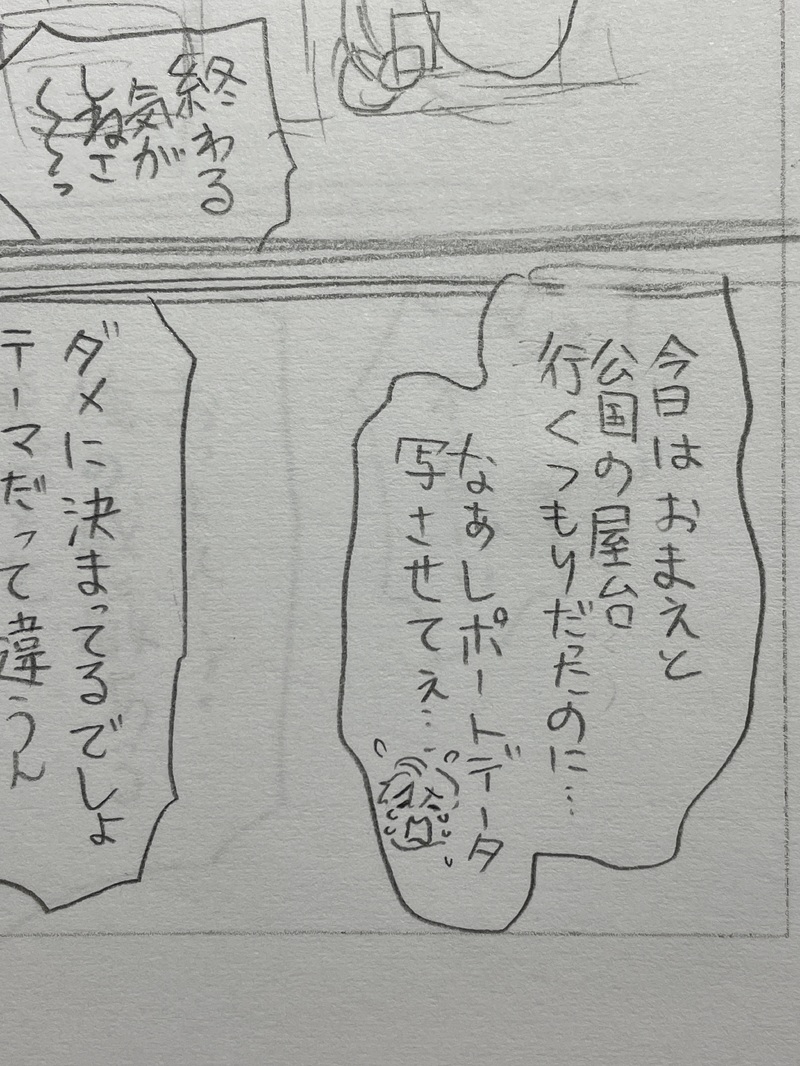 終わる
気が
しねェ
今日はおまえと
公国の屋台
行くつもりだったのに…
なあレポートデータ
写させてぇ…
ダメに決まってるでしょ
テーマだって違うん